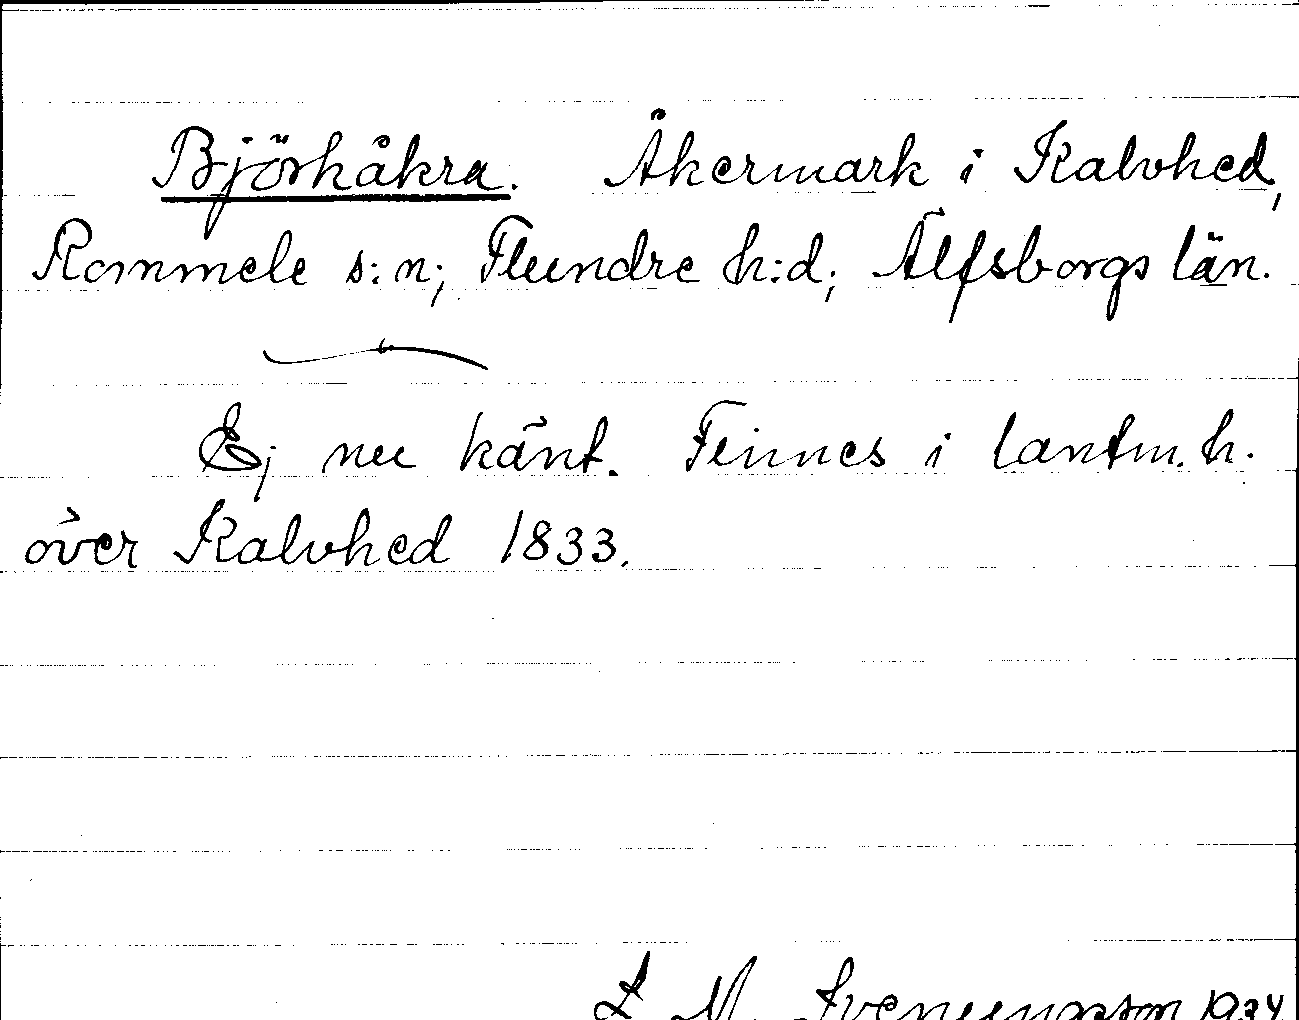 Björkåkra. Åkermark i Kalvhed,
Rommele s:n; Flundre h:d; Älfsborgs län.
Ej nu känt. Finnes i lantm.h.
över Kalvhed 1833.
L M. Svenungsson 1934